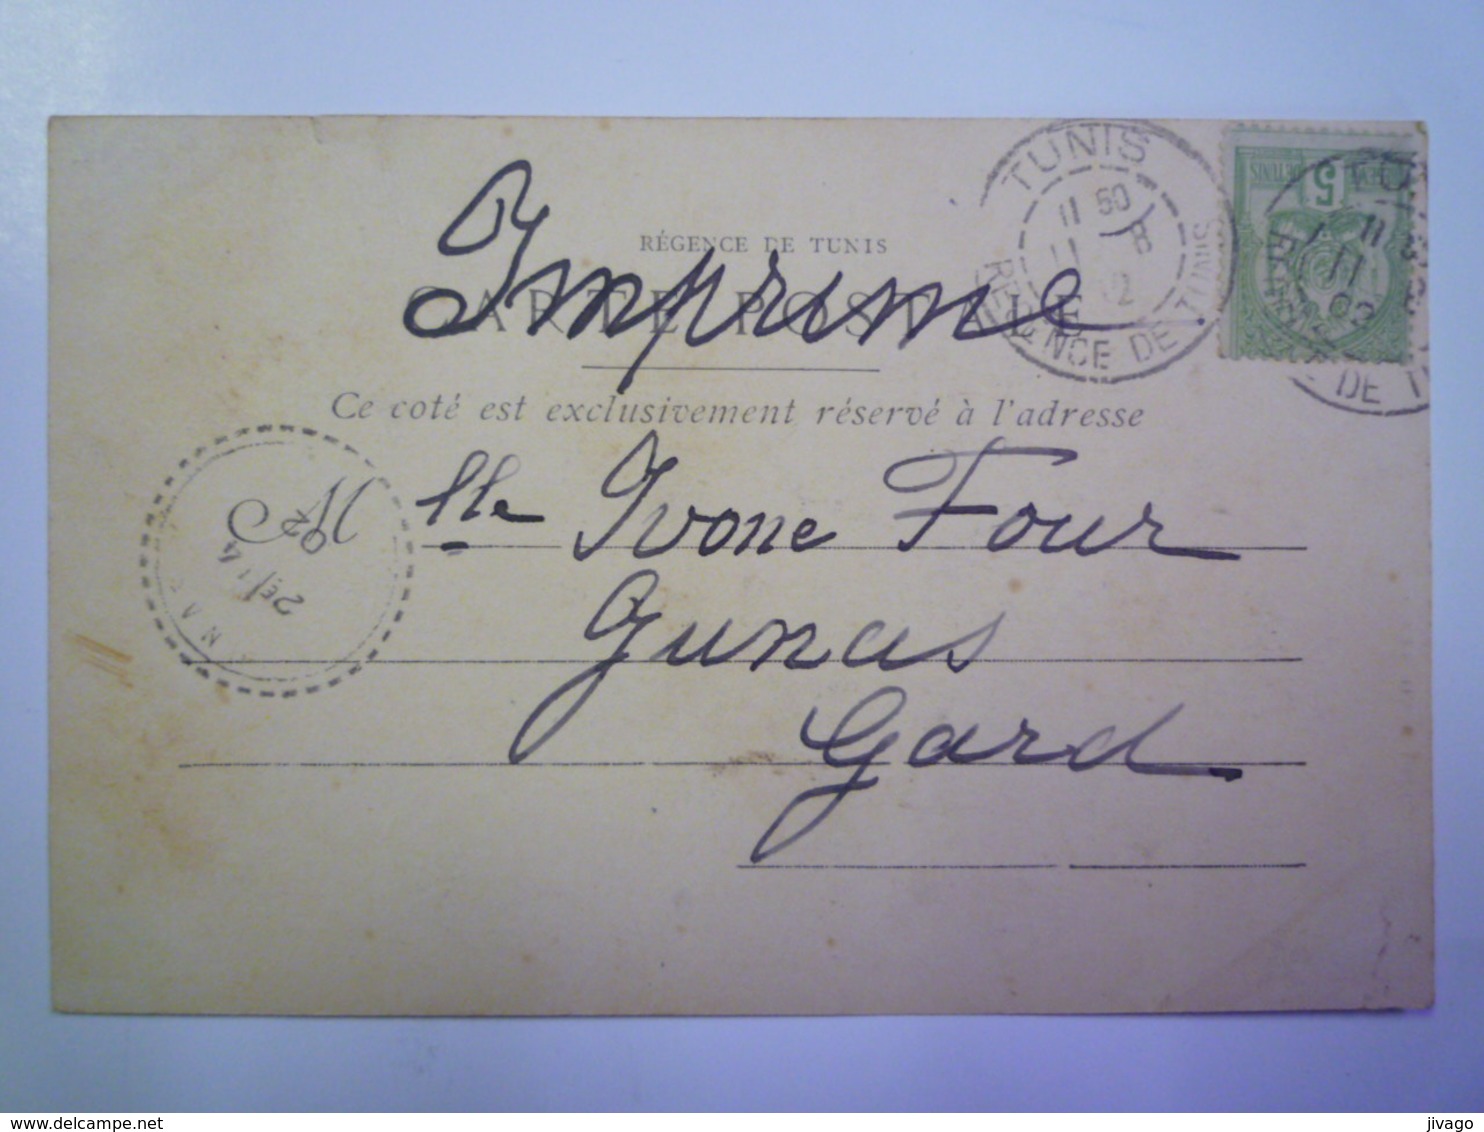 Imprime
RÉGENCE DE TUNIS
CARTE POSTALE
Ce coté est exclusivement réservé à l'adresse
Mlle Yvone Four
Junas
Gard
TUNIS
11 50
11 8
02
REGENCE DE TUNIS
5
DE TUNIS
11
02
DE T
jivago
www.delcampe.net